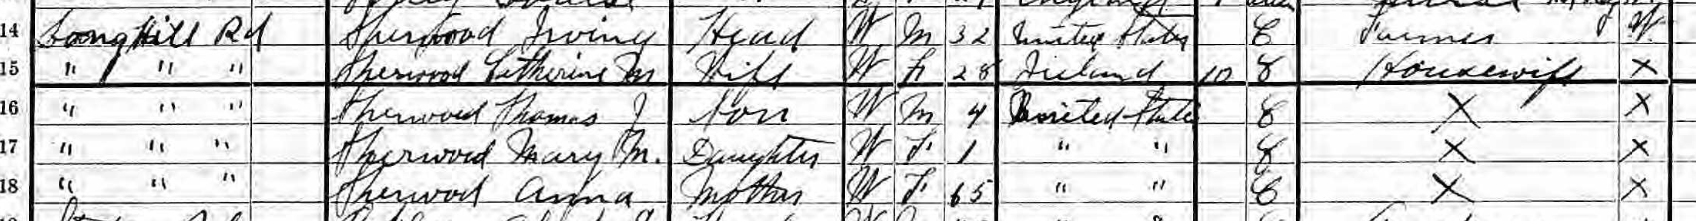 14 Long Hill Rd Sherwood Irving Head W M 32 United States C Farmer W
15 " " " Sherwood Catherine M Wife W F 28 Ireland 10 C Housewife X
16 " " " Sherwood Thomas J Son W M 4 United States C X X
17 " " " Sherwood Mary M. Daughter W F 1 " " C X X
18 " " " Sherwood Anna Mother W F 65 " " C X X